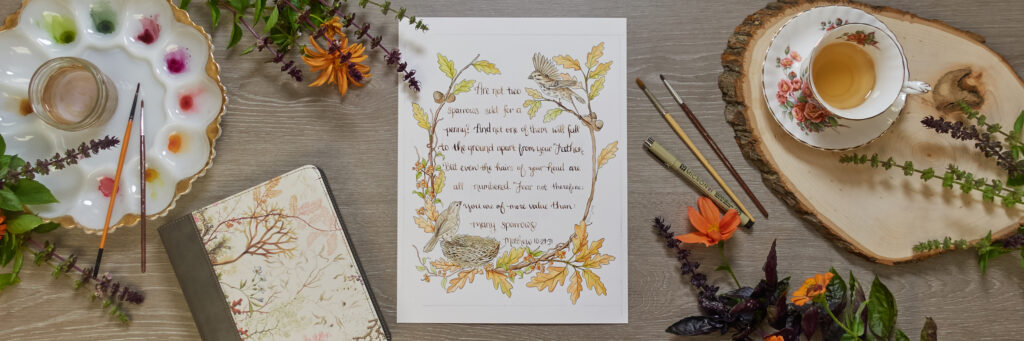 Are not two
sparrows sold for a
penny? And not one of them will fall
to the ground apart from your Father.
But even the hairs of your head are
all numbered. Fear not therefore:
you are of more value than
many sparrows.
Matthew 10:29-31